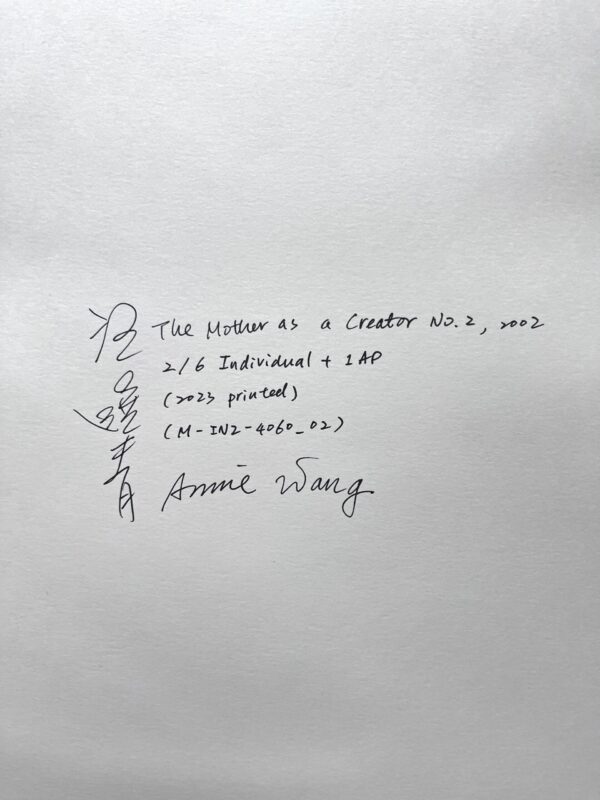 汪曉青
The Mother as a Creator No. 2, 2002
2/6 Individual + 1AP
(2023 printed)
(M-IN2-4060_02)
Annie Wang